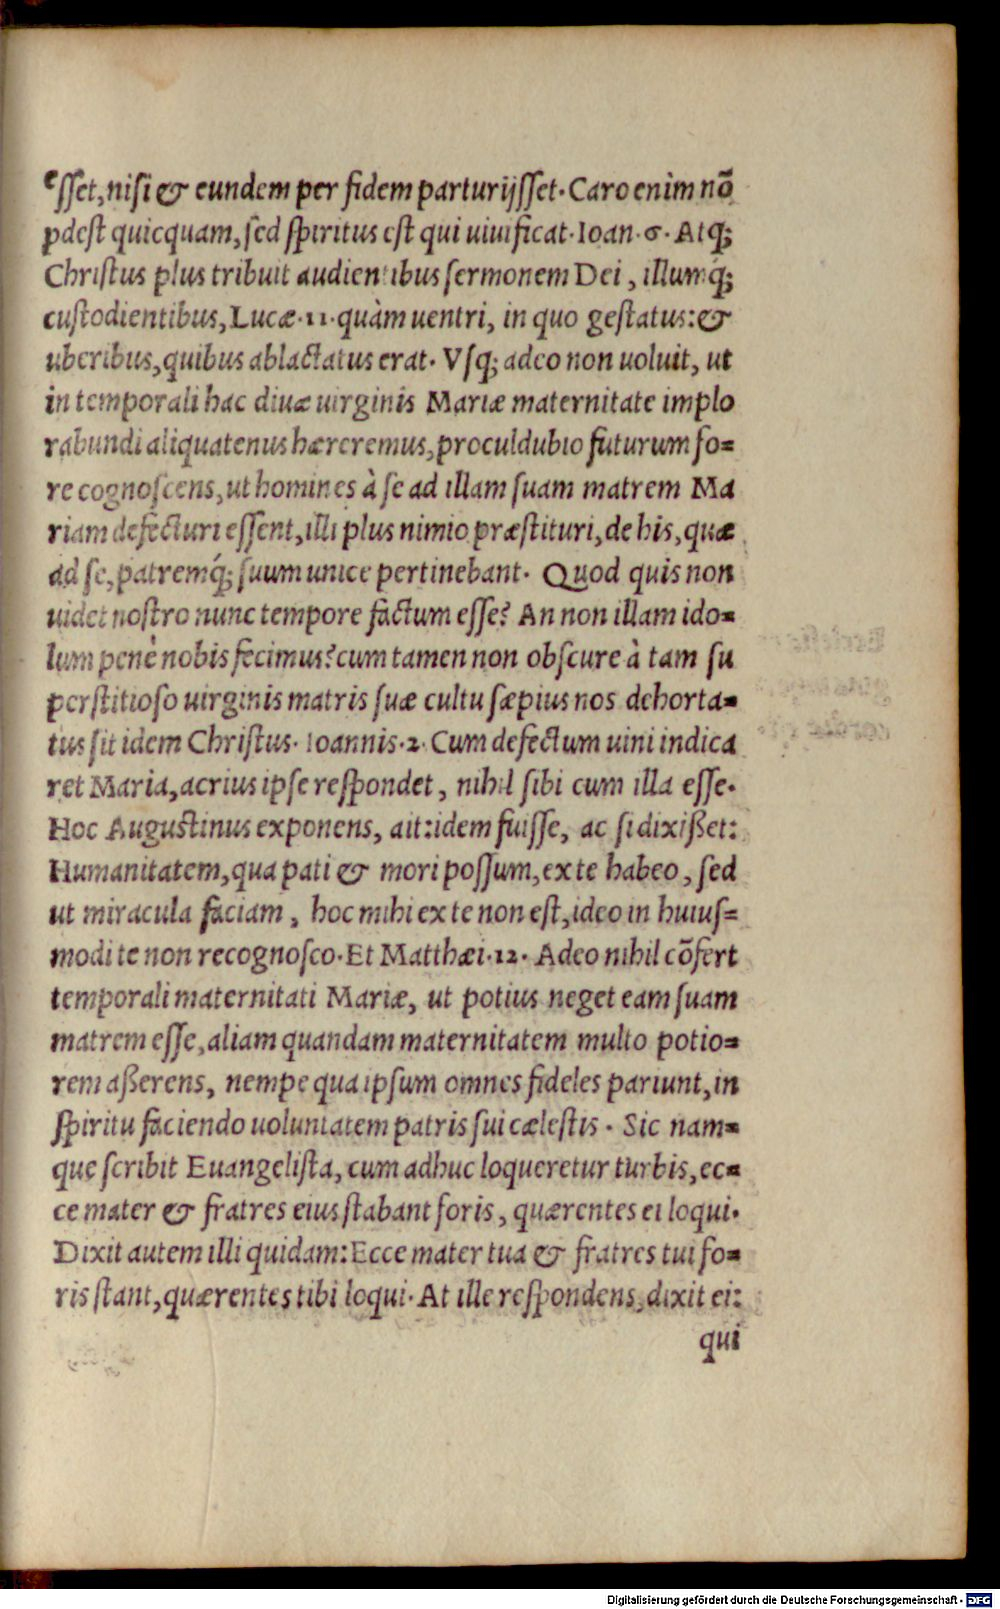 esset, nisi & eundem per fidem parturijsset. Caro enim nō
pdest quicquam, sed spiritus est qui uiuificat. Ioan. 6. Atq;
Christus plus tribuit audientibus sermonem Dei, illumq́;
custodientibus, Lucæ. 11. quàm uentri, in quo gestatus: &
uberibus, quibus ablactatus erat. Vsq; adeo non uoluit, ut
in temporali hac diuæ uirginis Mariæ maternitate implo
rabundi aliquatenus hæreremus, proculdubio futurum fo=
re cognoscens, ut homines à se ad illam suam matrem Ma
riam defecturi essent, illi plus nimio præstituri, de his, quæ
ad se, patremq́; suum unice pertinebant. Quod quis non
uidet nostro nunc tempore factum esse? An non illam ido=
lum penè nobis fecimus? cum tamen non obscure à tam su
perstitioso uirginis matris suæ cultu sæpius nos dehorta=
tus sit idem Christus. Ioannis. 2. Cum defectum uini indica
ret Maria, acrius ipse respondet, nihil sibi cum illa esse.
Hoc Augustinus exponens, ait: idem fuisse, ac si dixißet:
Humanitatem, qua pati & mori possum, ex te habeo, sed
ut miracula faciam, hoc mihi ex te non est, ideo in huius=
modi te non recognosco. Et Matthæi. 12. Adeo nihil cōfert
temporali maternitati Mariæ, ut potius neget eam suam
matrem esse, aliam quandam maternitatem multo potio=
rem aßerens, nempe qua ipsum omnes fideles pariunt, in
spiritu faciendo uoluntatem patris sui cælestis. Sic nam=
que scribit Euangelista, cum adhuc loqueretur turbis, ec=
ce mater & fratres eius stabant foris, quærentes ei loqui.
Dixit autem illi quidam: Ecce mater tua & fratres tui fo=
ris stant, quærentes tibi loqui. At ille respondens, dixit ei:
qui
Digitalisierung gefördert durch die Deutsche Forschungsgemeinschaft - DFG